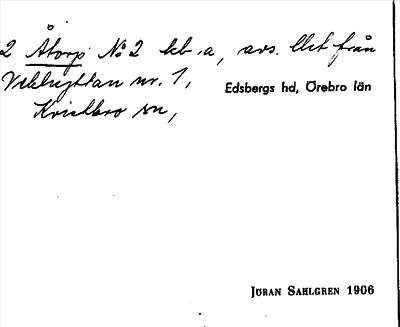 2 Åtorp No 2 lkb.a, avs. llet från
Vekhyttan nr. 1,
Edsbergs hd, Örebro län
Kvistbro sn,
JÖRAN SAHLGREN 1906